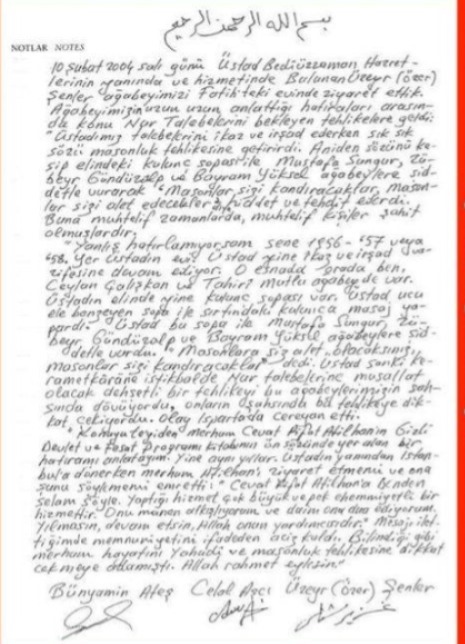 بسم الله الرحمن الرحيم
NOTLAR NOTES
10 Şubat 2004 salı günü Üstad Bediüzzaman Hazret-
lerinin yanında ve hizmetinde Bulunan Üzeyr (Özer)
Şenler ağabeyimizi Fatih'teki evinde ziyaret ettik.
Ağabeyimizin uzun uzun anlattığı hatıraları arasın-
da konu Nur Talebelerini bekleyen tehlikelere geldi:
"Üstadımız talebelerini ikaz ve irşad ederken sık sık
sözü masonluk tehlikesine getirirdi. Aniden sözünü ke-
sip elindeki kulunc sopası ile Mustafa Sungur, Zü-
beyr Gündüzalp ve Bayram Yüksel ağabeylere şid-
detle vurarak "Masonlar sizi kandıracaklar, mason-
lar sizi alet edecekler" diye hiddet ve tehdit ederdi.
Buna muhtelif zamanlarda, muhtelif kişiler şahit
olmuşlardır.
"Yanlış hatırlamıyorsam sene 1956-'57 veya
'58. Yer Üstadın evi. Üstad yine ikaz ve irşad va-
zifesine devam ediyor. O esnada orada ben,
Ceylan Çalışkan ve Tahiri Mutlu ağabey de var.
Üstadın elinde yine kulunc sopası var. Üstad ucu
ele benzeyen sopa ile sırtındaki kulunca masaj ya-
pardı. Üstad bu sopa ile Mustafa Sungur, Zü-
beyr Gündüzalp ve Bayram Yüksel ağabeylere şid-
detle vurdu. "Masonlara siz alet olacaksınız,
masonlar sizi kandıracaklar" dedi. Üstad sanki ke-
rametkârâne istikbalde Nur talebelerine musallat
olacak dehşetli bir tehlikeyi bu ağabeylerimizin şah-
sında dövüyordu, onların şahsında bu tehlikeye dik-
kat çekiyordu. Olay Ispartada Cereyan etti.
merhum Cevat Rıfat Atilhan'ın Gizli
Devlet ve Fesat Programı kitabının ön sözünde yer alan bir
hatıramı anlatayım. Yine aynı yıllar. Üstadın yanından İstan-
bul'a dönerken merhum Atilhan'ı ziyaret etmemi ve ona
şunu söylememi emretti: "Cevat Rıfat Atilhan'a benden
selam söyle. Yaptığı hizmet çok büyük ve pek ehemmiyetli bir
hizmettir. Onu manen alkışlıyorum ve daim ona dua ediyorum.
Yılmasın, devam etsin, Allah onun yardımcısıdır." Mesajı ilet-
tiğimde memnuniyetini ifadeden aciz kaldı. Bilindiği gibi
merhum hayatını Yahudi ve masonluk tehlikesine dikkat
çekmeye adamıştı. Allah rahmet eylesin."
Bünyamin Ateş Celal Üzeyr (Özer) Şenler